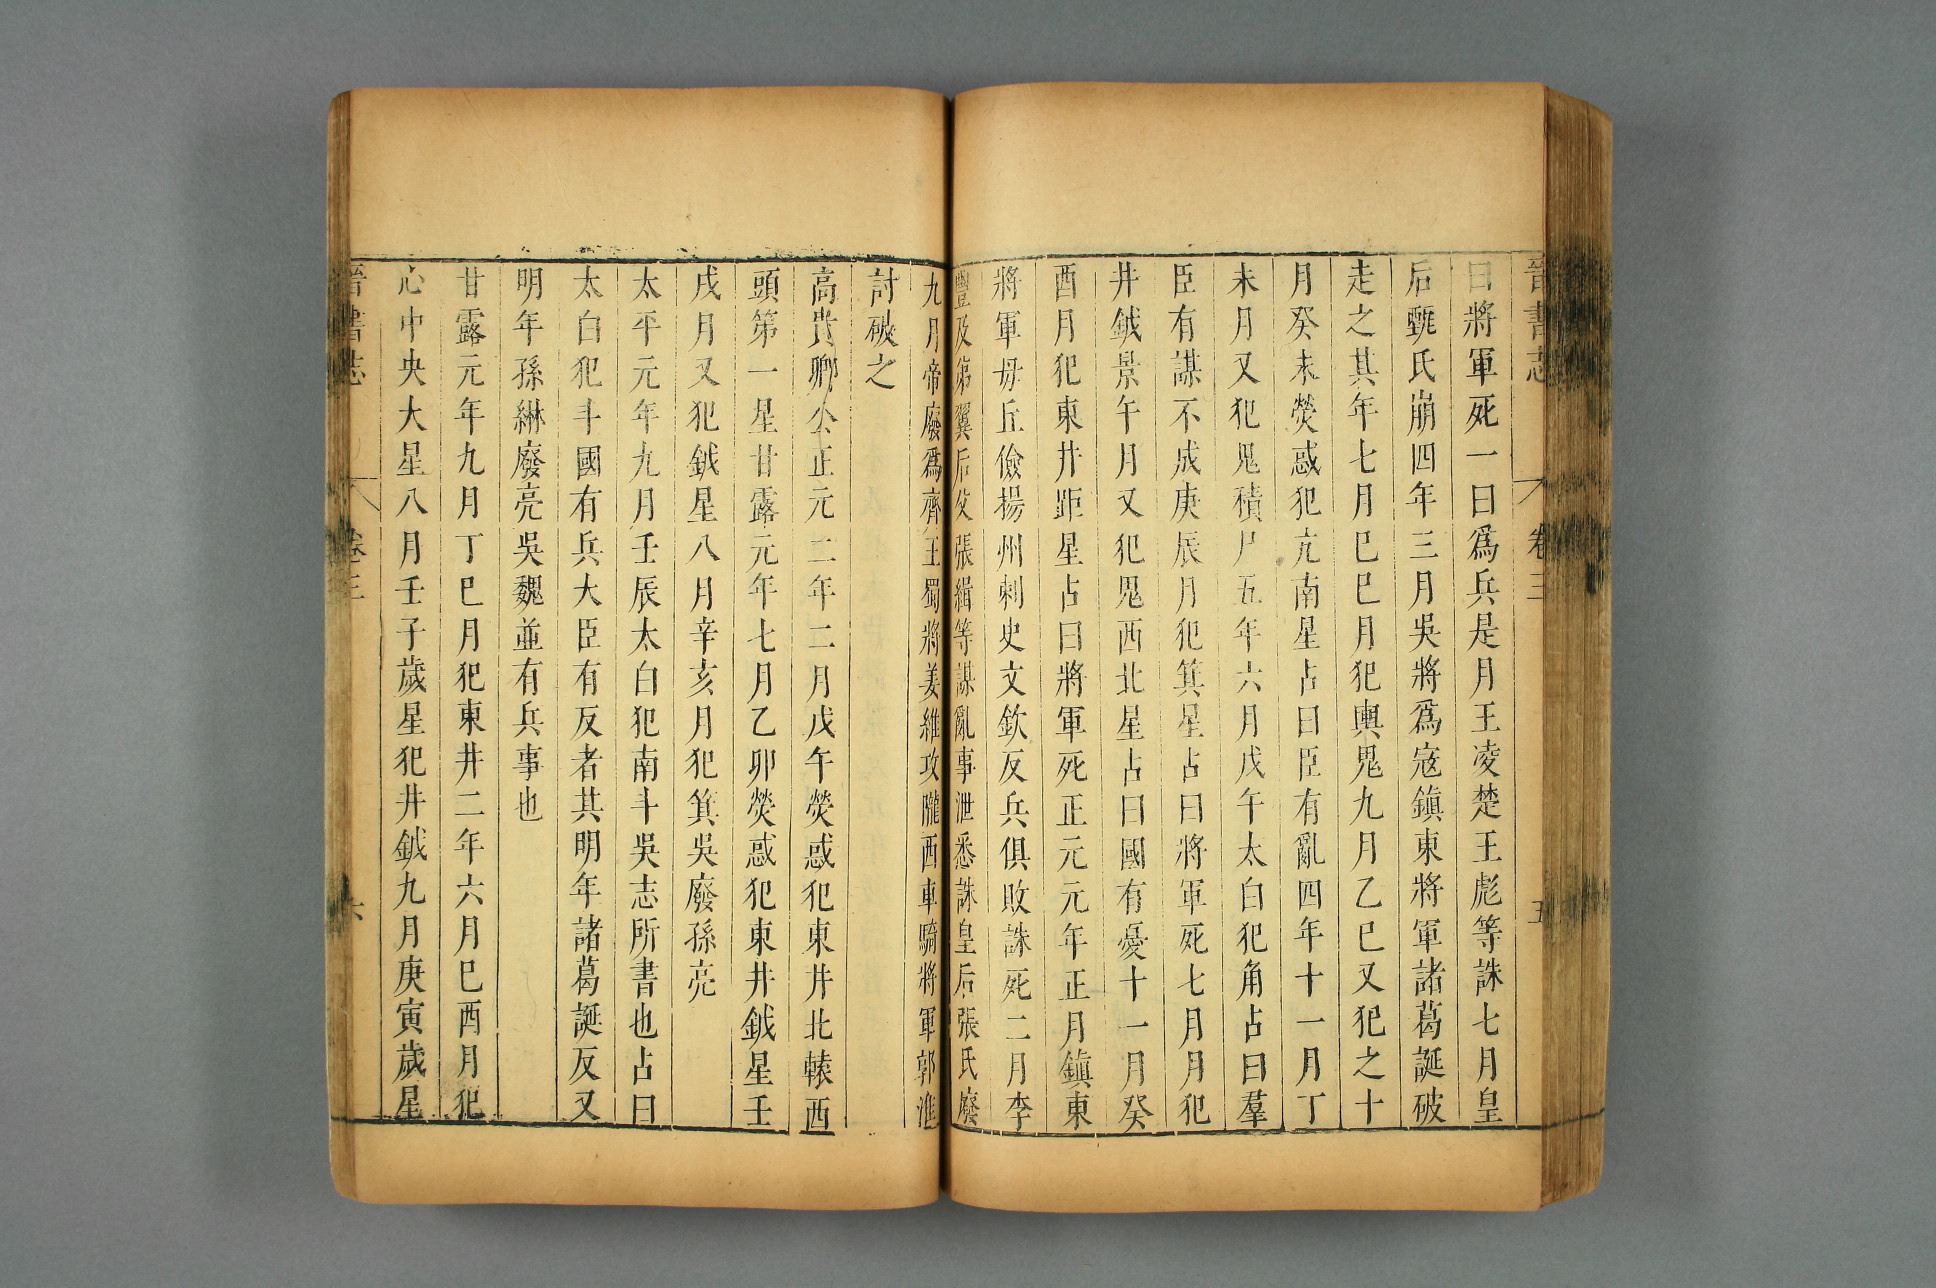 晉書志 卷三 五
曰將軍死一曰爲兵是月王凌楚王彪等誅七月皇
后甄氏崩四年三月吳將爲寇鎮東將軍諸葛誕破
走之其年七月巳巳月犯輿鬼九月乙巳又犯之十
月癸未熒惑犯亢南星占曰臣有亂四年十一月丁
未月又犯鬼積尸五年六月戊午太白犯角占曰羣
臣有謀不成庚辰月犯箕星占曰將軍死七月月犯
井鉞景午月又犯鬼西北星占曰國有憂十一月癸
酉月犯東井距星占曰將軍死正元元年正月鎮東
將軍毋丘儉揚州刺史文欽反兵俱敗誅死二月李
豐及弟翼后父張緝等謀亂事泄悉誅皇后張氏廢
九月帝廢爲齊王蜀將姜維攻隴西車騎將軍郭淮
討破之
高貴鄉公正元二年二月戊午熒惑犯東井北轅西
頭第一星甘露元年七月乙卯熒惑犯東井鉞星壬
戌月又犯鉞星八月辛亥月犯箕吳廢孫亮
太平元年九月壬辰太白犯南斗吳志所書也占曰
太白犯斗國有兵大臣有反者其明年諸葛誕反又
明年孫綝廢亮吳魏並有兵事也
甘露元年九月丁巳月犯東井二年六月巳酉月犯
心中央大星八月壬子歲星犯井鉞九月庚寅歲星
晉書志 卷三 六